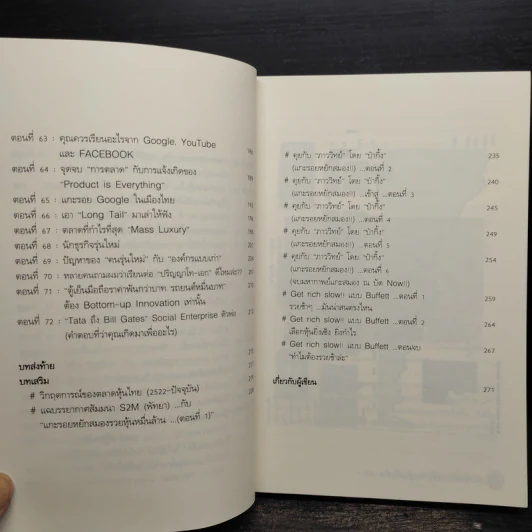 ตอนที่ 63 : คุณควรเรียนอะไรจาก Google, YouTube
และ FACEBOOK
ตอนที่ 64 : จุดจบ "การตลาด" กับการแจ้งเกิดของ
"Product is Everything"
ตอนที่ 65 : แกะรอย Google ในเมืองไทย
ตอนที่ 66 : เอา "Long Tail" มาเล่าให้ฟัง
ตอนที่ 67 : ตลาดที่กำไรที่สุด "Mass Luxury"
ตอนที่ 68 : นักธุรกิจรุ่นใหม่
ตอนที่ 69 : ปัญหาของ "คนรุ่นใหม่" กับ "องค์กรแบบเก่า"
ตอนที่ 70 : หลายคนถามผมว่าเรียนต่อ "ปริญญาโท-เอก" ดีไหมล่ะ??
ตอนที่ 71 : "ตู้เย็นมือถือราคาพันกว่าบาท รถยนต์หมื่นบาท"
ต้อง Bottom-up Innovation เท่านั้น
ตอนที่ 72 : "Tata ถึง Bill Gates" Social Enterprise ตัวพ่อ
(คำตอบที่ว่าคุณเกิดมาเพื่ออะไร)
บทส่งท้าย
บทเสริม
# วิกฤตการณ์ของตลาดหุ้นไทย (2522-ปัจจุบัน)
# แฉบรรยากาศสัมมนา S2M (พัทยา) ...กับ
"แกะรอยหยักสมองรวยหุ้นหมื่นล้าน ...(ตอนที่ 1)"
# คุยกับ "ภาววิทย์" โดย "ป๋ากึ้ง" 235
(แกะรอยหยักสมอง!!) ...ตอนที่ 2
# คุยกับ "ภาววิทย์" โดย "ป๋ากึ้ง" 240
(แกะรอยหยักสมอง!!) ...เข้าสู่ ...ตอนที่ 3
# คุยกับ "ภาววิทย์" โดย "ป๋ากึ้ง" 245
(แกะรอยหยักสมอง!!) ...ตอนที่ 4
# คุยกับ "ภาววิทย์" โดย "ป๋ากึ้ง"
(แกะรอยหยักสมอง!!) ...ตอนที่ 5
# คุยกับ "ภาววิทย์" โดย "ป๋ากึ้ง"
(แกะรอยหยักสมอง!!) ...ตอนที่ 6
(จบมหากาพย์แกะสมอง ณ บัด Now!!)
# Get rich slow!! แบบ Buffett ...ตอนที่ 1 259
รวยช้าๆ ...มันน่าสนตรงไหน
# Get rich slow!! แบบ Buffett ...ตอนที่ 2 264
เลือกหุ้นยังเซิง ยังกำไร
# Get rich slow!! แบบ Buffett ...ตอนจบ 267
"ทำไมต้องรวยช้าล่ะ"
เกี่ยวกับผู้เขียน 271